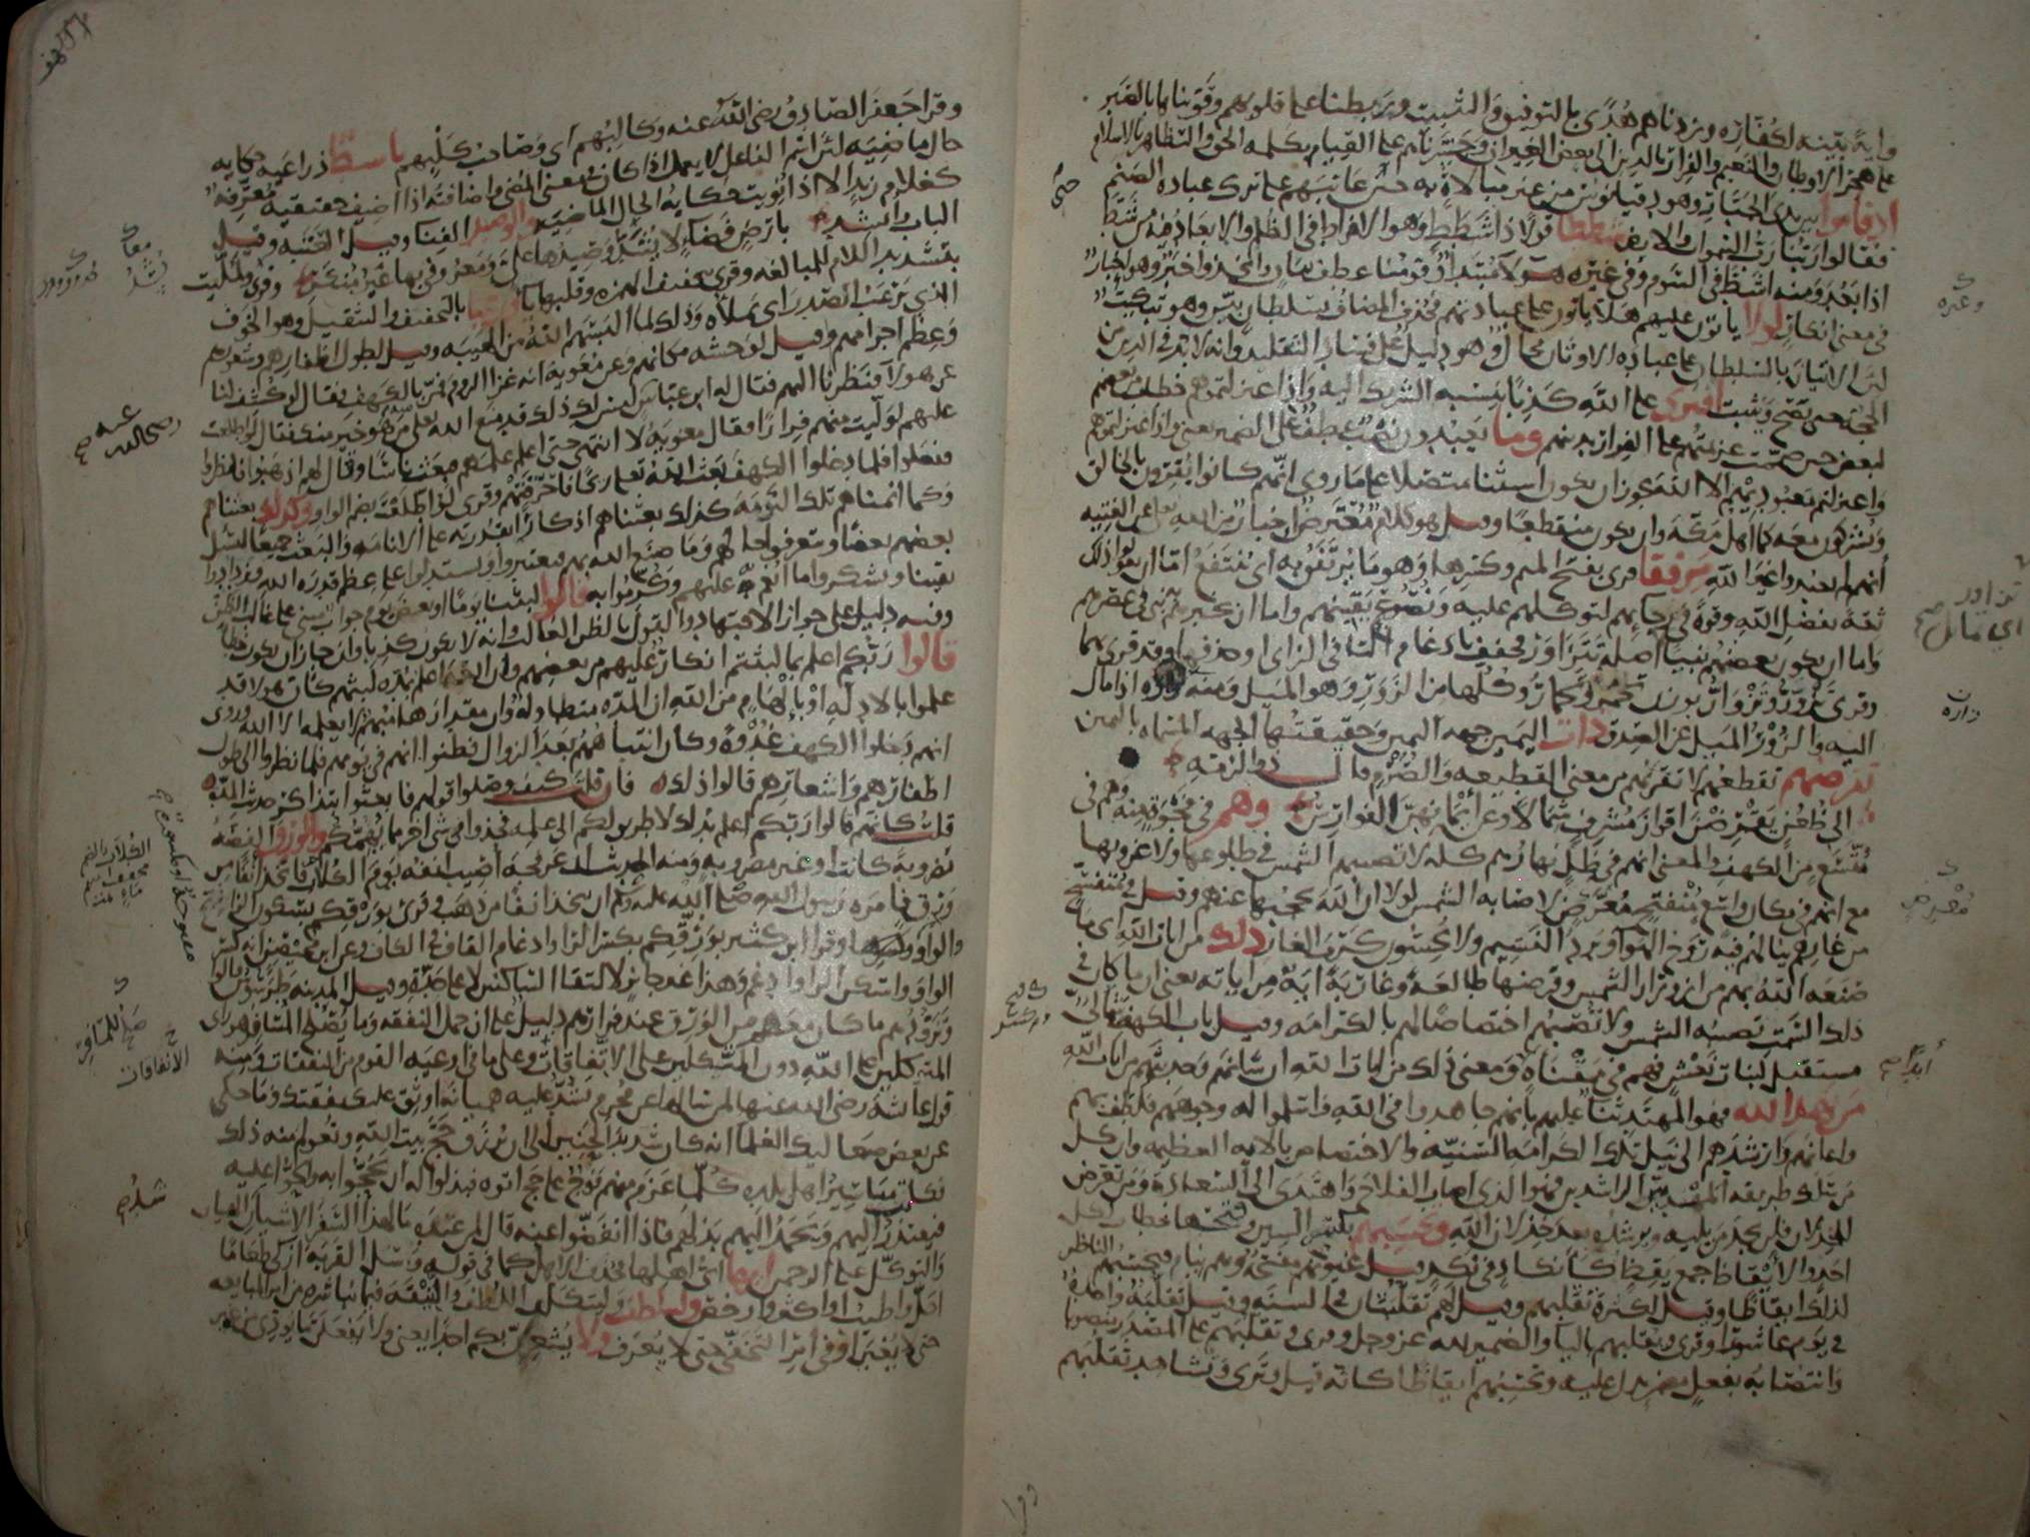 وآية بينة لكفاره وزدناهم هدى بالتوفيق والتثبيت وربطنا على قلوبهم وقويناها بالصبر
على هجر الاوطان والنعيم والفرار بالدين الى بعض الغيران وجسرناهم على القيام بكلمه الحق والتظاهر بالاسلام
اذ قاموا بين يدى الجبار وهو دقيانوس من غير مبالاة به حين عاتبهم على ترك عباده الصنم
فقالوا ربنا رب السموات والارض شططا قولا ذا شطط وهو الافراط فى الظلم والابعاد فيه من شط
اذا بعد ومنه اشط فى السوم وفى غيره هولا مبتدا وقومنا عطف بيان واتخذوا خبر وهو اخبار
فى معنى انكار لولا ياتون عليهم هلا ياتون على عبادتهم فحذف المضاف بسلطان بين وهو تبكيت
لان الاتيان بالسلطان على عباده الاوثان محال وهو دليل على فساد التقليد وانه لا بد فى الدين من
الحجه حتى يصح ويثبت افترى على الله كذبا بنسبه الشريك اليه واذ اعتزلتموهم خطاب من بعضهم
لبعض حين صممت عزيمتهم على الفرار بدينهم وما يعبدون نصب عطف على الضمير يعنى واذ اعتزلتموهم
واعتزلتم معبوديهم الا الله يجوز ان يكون استثنا متصلا على ما روى انهم كانوا يقرون بالخالق
ويشركون معه كما اهل مكه وان يكون منقطعا وقيل هو كلام معترض اخبار من الله تعالى عن الفتيه
انهم لم يعبدوا غير الله مرفقا قرى بفتح الميم وكسرها وهو ما يرتفق به اى ينتفع اما ان يقولوا ذلك
ثقة بفضل الله وقوة فى رجايهم لتوكلهم عليه ونصوع يقينهم واما ان يخبرهم به نبى فى عصرهم
واما ان يكون بعضهم نبيا اصله تتزاور فخفف بادغام التا فى الزاى او حذفها وقد قرى بهما
وقرى تزور وتزوار بوزن تحمر وتحمار وكلها من الزور وهو الميل ومنه زاره اذا مال
اليه والزور الميل عن الصدق ذات اليمين جهه اليمين وحقيقتها الجهه المسماه باليمين
تقرضهم تقطعهم لا تقربهم من معنى القطيعه والصرم قال ذو الرمه
الى ظعن يقرضن اقواز مشرف شمالا وعن ايمانهن الفوارس وهم فى فجوة منه وهم فى
متسع من الكهف والمعنى انهم فى ظل نهارهم كله لا تصيبهم الشمس فى طلوعها ولا غروبها
مع انهم فى مكان واسع منفتح معرض لاصابه الشمس لولا ان الله يحجبها عنهم وقيل فى متفسح
من غارهم ينالهم فيه روح الهوا وبرد النسيم ولا يحسون كرب الغار ذلك من ايات الله اى ما
صنعه الله بهم من ازورار الشمس وقرضها طالعة وغاربة اية من اياته يعنى ان ما كان فى
ذلك السمت تصيبه الشمس ولا تصيبهم اختصاصا لهم بالكرامه وقيل باب الكهف شمالى
مستقبل لبنات نعش فهم فى مقناة ومعنى ذلك من ايات الله ان شانهم وحديثهم من ايات الله
من يهد الله فهو المهتد ثنا عليهم بانهم جاهدوا فى الله واسلموا له وجوههم فلطف بهم
واعانهم وارشدهم الى نيل تلك الكرامه السنيه والاختصاص بالايه العظيمه وان كل
من سلك طريقه المهتدين الراشدين فهو الذى اصاب الفلاح واهتدى الى السعادة ومن تعرض
للخذلان فلن يجد من يليه ويرشده بعد خذلان الله وتحسبهم بكسر السين وفتحها خطاب لكل
احد والايقاظ جمع يقظ كانكاد فى نكد وقيل عيونهم مفتحة وهم نيام فيحسبهم الناظر
لذلك ايقاظا وقيل لكثرة تقلبهم وقيل لهم تقلبتان فى السنه وقيل تقلبة واحدة
فى يوم عاشورا وقرى ويقلبهم باليا والضمير لله عز وجل وقرى وتقلبهم على المصدر منصوبا
وانتصابه بفعل مضمر دل عليه وتحسبهم ايقاظا كانه قيل وترى وتشاهد تقلبهم
وغيره
زاره
معرض
ابدا صح
وقرا جعفر الصادق رضى الله عنه وكالبهم اى وصاحب كلبهم باسط ذراعيه حكايه
حال ماضيه لان اسم الفاعل لا يعمل اذا كان فى معنى المضى واضافته اذا اضيف حقيقيه معرفه
كغلام زيد الا اذا نويت حكايه الحال الماضيه والوصيد الفنا وقيل العتبه وقيل
الباب وانشد بارض فضا لا يسد وصيدها على ومعروفى بها غير منكر وقرى ولملئت
بتشديد اللام للمبالغه وقرى بتخفيف الهمزه وقلبها يا رعبا بالتخفيف والتثقيل وهو الخوف
الذى يرعب الصدر اى يملاه وذلك لما البسهم الله من الهيبه وقيل لطول اظفارهم وشعورهم
وعظم اجرامهم وقيل لوحشه مكانهم وعن معويه انه غزا الروم فمر بالكهف فقال لو كشف لنا
عن هولا فنظرنا اليهم فقال له ابن عباس ليس لك ذلك قد منع الله تعالى من هو خير منك فقال لو اطلعت
عليهم لوليت منهم فرارا فقال معويه لا انتهى حتى اعلم علمهم فبعث ناسا وقال لهم اذهبوا فانظروا
ففعلوا فلما دخلوا الكهف بعث الله تعالى ريحا فاحرقتهم وقرى لو اطلعت بضم الواو وكذلك بعثناهم
وكما انمناهم تلك النومه كذلك بعثناهم اذكارا بقدرته على الانامه والبعث جميعا ليسل
بعضهم بعضا ويتعرفوا حالهم وما صنع الله بهم فيعتبروا ويستدلوا على عظم قدره الله ويزدادوا
يقينا ويشكروا ما انعم به عليهم وكرموا به قالوا لبثنا يوما او بعض يوم جواب مبنى على غالب الظن
وفيه دليل على جواز الاجتهاد والقول بالظن الغالب وانه لا يكون كذبا وان جاز ان يكون خطا
قالوا ربكم اعلم بما لبثتم انكار عليهم من بعضهم وان الله اعلم بمده لبثهم كان هولا قد
علموا بالادله او بالهام من الله ان المده متطاوله وان مقدارها مبهم لا يعلمه الا الله وروى
انهم دخلوا الكهف غدوة وكان انتباههم بعد الزوال فظنوا انهم فى يومهم فلما نظروا الى طول
اظفارهم واشعارهم قالوا ذلك فان قلت كيف وصلوا قولهم فابعثوا بتذاكر حديث المده
قلت كانهم قالوا ربكم اعلم بذلك لا طريق لكم الى علمه فخذوا فى شى اخر مما يهمكم والورق الفضه
مضروبة كانت او غير مضروبه ومنه الحديث ان عرفجه اصيب انفه يوم الكلاب فاتخذ انفا من
ورق فانتن فامره رسول الله صلى الله عليه وسلم ان يتخذ انفا من ذهب وقرى بورقكم بسكون الرا
وقرا ابن كثير بورقكم بكسر الرا وادغام القاف فى الكاف وعن ابن محيصن انه كسر
الواو واسكن الرا وادغم وهذا غير جايز لالتقا الساكنين لا على حده وقيل المدينه طرسوس قالوا
وتزودهم ما كان معهم من الورق عند فرارهم دليل على ان حمل النفقه وما يصلح المسافر هو راى
المتوكلين على الله دون المتكلين على الاتفاقات وعلى ما فى اوعيه القوم من النفقات ومنه
قول عائشة رضى الله عنها لمن سالها عن محرم يشد عليه هميانه اوثق عليك نفقتك وما حكى
عن بعض صعاليك العلما انه كان شديد الحنين الى ان يرزق حج بيت الله وتعولم منه ذلك
فكانت مياسير اهل بلده كلما عزم منهم فوج على حج اتوه فبذلوا له ان يحجوا به والحوا عليه
فيعتذر اليهم ويحمد اليهم بذلهم فاذا انفضوا عنه قال لمن عنده ما لهذا السفر الا شيان شد الهميان
والتوكل على الرحمن ايها اى اهلها فحذف الاهل كما فى قوله واسل القريه ازكى طعاما
احل واطيب او اكثر وارخص وليتلطف وليتكلف اللطف والنيقه فيما يباشره من امر المبايعه
حتى لا يغبن او فى امر التخفى حتى لا يعرف ولا يشعرن بكم احدا يعنى ولا يفعلن ما يودى من غير
رضى الله عنه صح
الاتفاقات